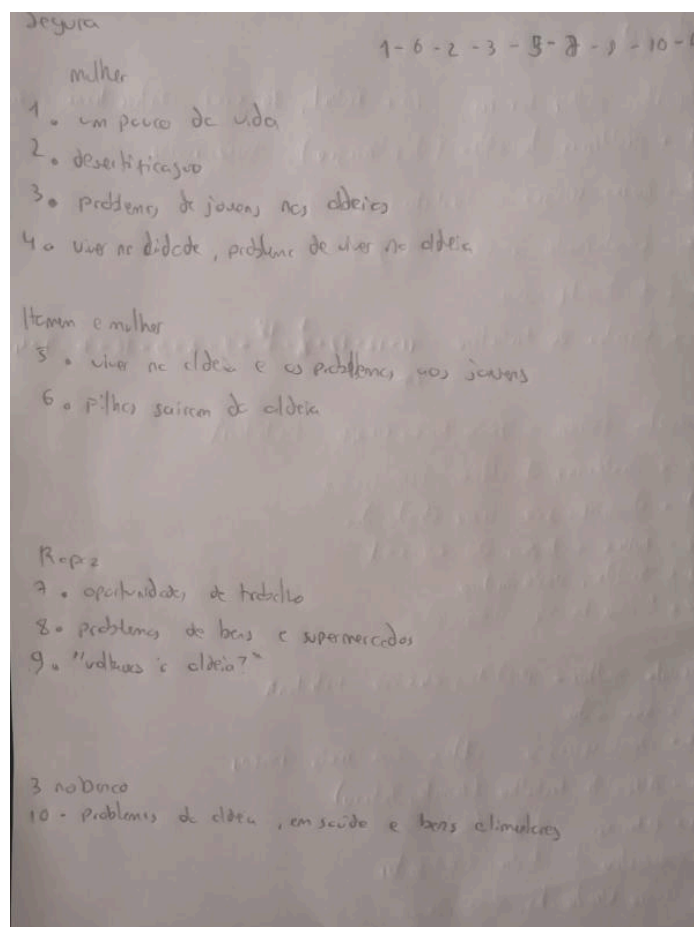 Segura
1 - 6 - 2 - 3 - 5 - 7 - 9 - 10 -
mulher
1. um pouco da vida
2. desertificação
3. problemas de jovens nas aldeias
4. viver na cidade, problema de viver na aldeia
Homem e mulher
5. viver na aldeia e os problemas nos jovens
6. filhos sairem da aldeia
Rapaz
7. oportunidades de trabalho
8. problemas de bens e supermercados
9. "voltavas à aldeia?"
3 no banco
10 - Problemas da aldeia, em saúde e bens alimentares